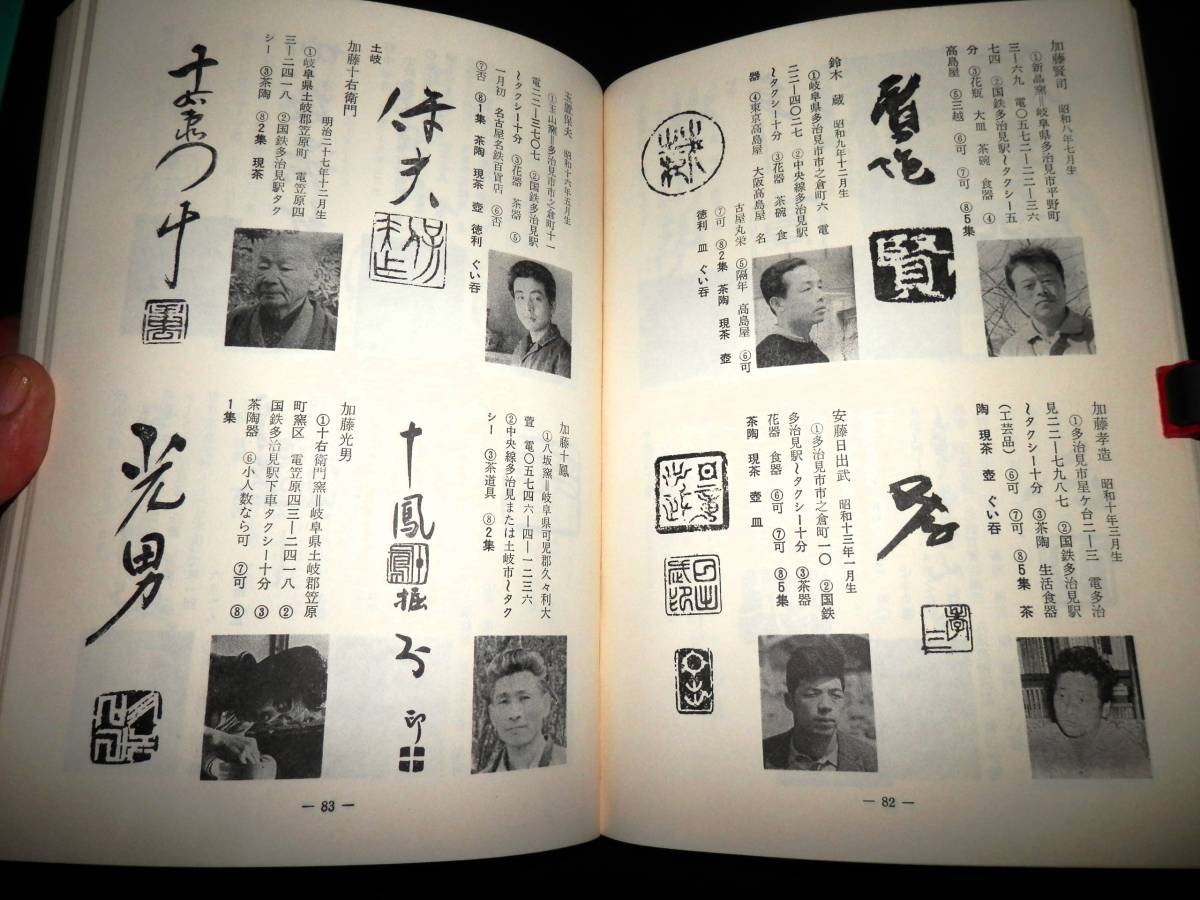 加藤賢司　昭和八年七月生
①新晶窯＝岐阜県多治見市平野町
三ー六九　電〇五七二ー二二ー三六
七四　②国鉄多治見駅〜タクシー五
分　③花瓶　大皿　茶碗　食器　④
高島屋　⑤三越　⑥可　⑦可　⑧5集
賢
加藤孝造　昭和十年三月生
①多治見市星ケ台二ー三　電多治
見二二ー七九八七　②国鉄多治見駅
〜タクシー十分　③茶陶　生活食器
（工芸品）　⑥可　⑦可　⑧5集　茶
陶　現茶　壺　ぐい呑
鈴木　蔵　昭和九年十二月生
①岐阜県多治見市市之倉町六　電
二二ー四〇二七　②中央線多治見駅
〜タクシー十分　③花器　茶碗　食
器　④東京高島屋　大阪高島屋　名
古屋丸栄　⑤隔年　高島屋　⑥可
⑦可　⑧2集　茶陶　現茶　壺
徳利　皿　ぐい呑
安藤日出武　昭和十三年一月生
①多治見市市之倉町一〇　②国鉄
多治見駅〜タクシー十分　③茶器
花器　食器　⑥可　⑦可　⑧5集
茶陶　現茶　壺　皿
― 82 ―
玉置保夫　昭和十六年五月生
①玉山窯＝多治見市市之倉町十一
電二二ー三七〇七　②国鉄多治見駅
〜タクシー十分　③花器　茶器　⑤
一月初　名古屋名鉄百貨店　⑥否
⑦否　⑧1集　茶陶　現茶　壺　徳利　ぐい呑
保夫
土岐
加藤十右衛門　明治二十七年十二月生
①岐阜県土岐郡笠原町　電笠原四
三ー二四一八　②国鉄多治見駅タク
シー　③茶陶　⑧2集　現茶
加藤十鳳
①八坂窯＝岐阜県可児郡久々利大
萱　電〇五七四六ー四ー一二三六
②中央線多治見または土岐市〜タク
シー　③茶道具　⑧2集
十鳳
印
加藤光男
①十右衛門窯＝岐阜県土岐郡笠原
町窯区　電笠原四三ー二四一八　②
国鉄多治見駅下車タクシー十分　③
茶陶器　⑥小人数なら可　⑦可　⑧
1集
光男
― 83 ―